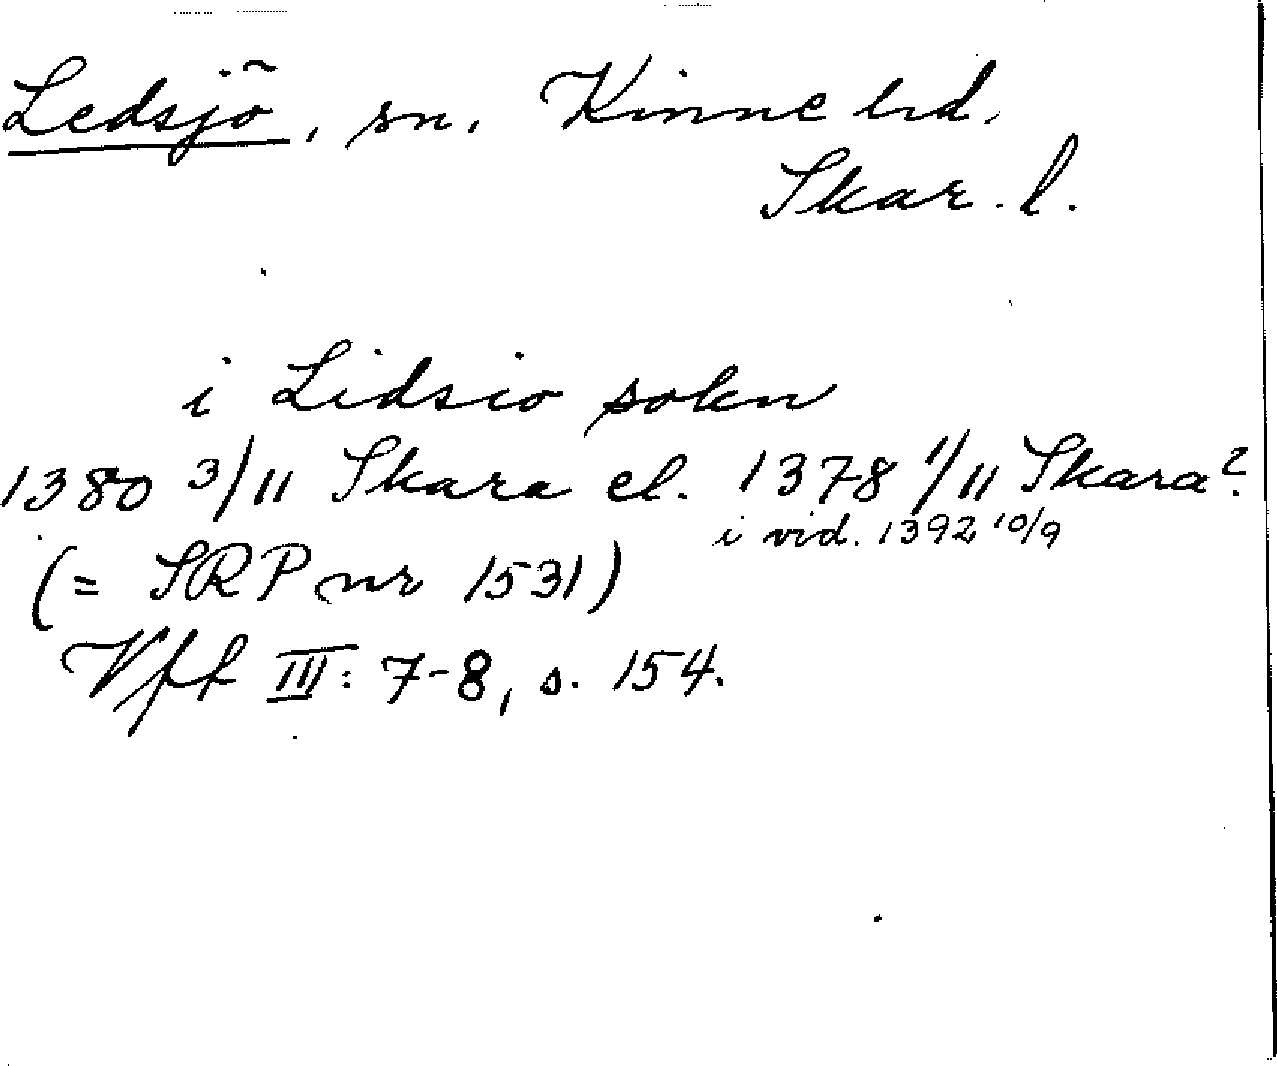 Ledsjö, sn. Kinne hd.
Skar. l.
i Lidsio sokn
1380 3/11 Skara el. 1378 1/11 Skara?
i vid. 1392 10/9
(= SRP nr 1531)
Vfft III: 7-8, s. 154.